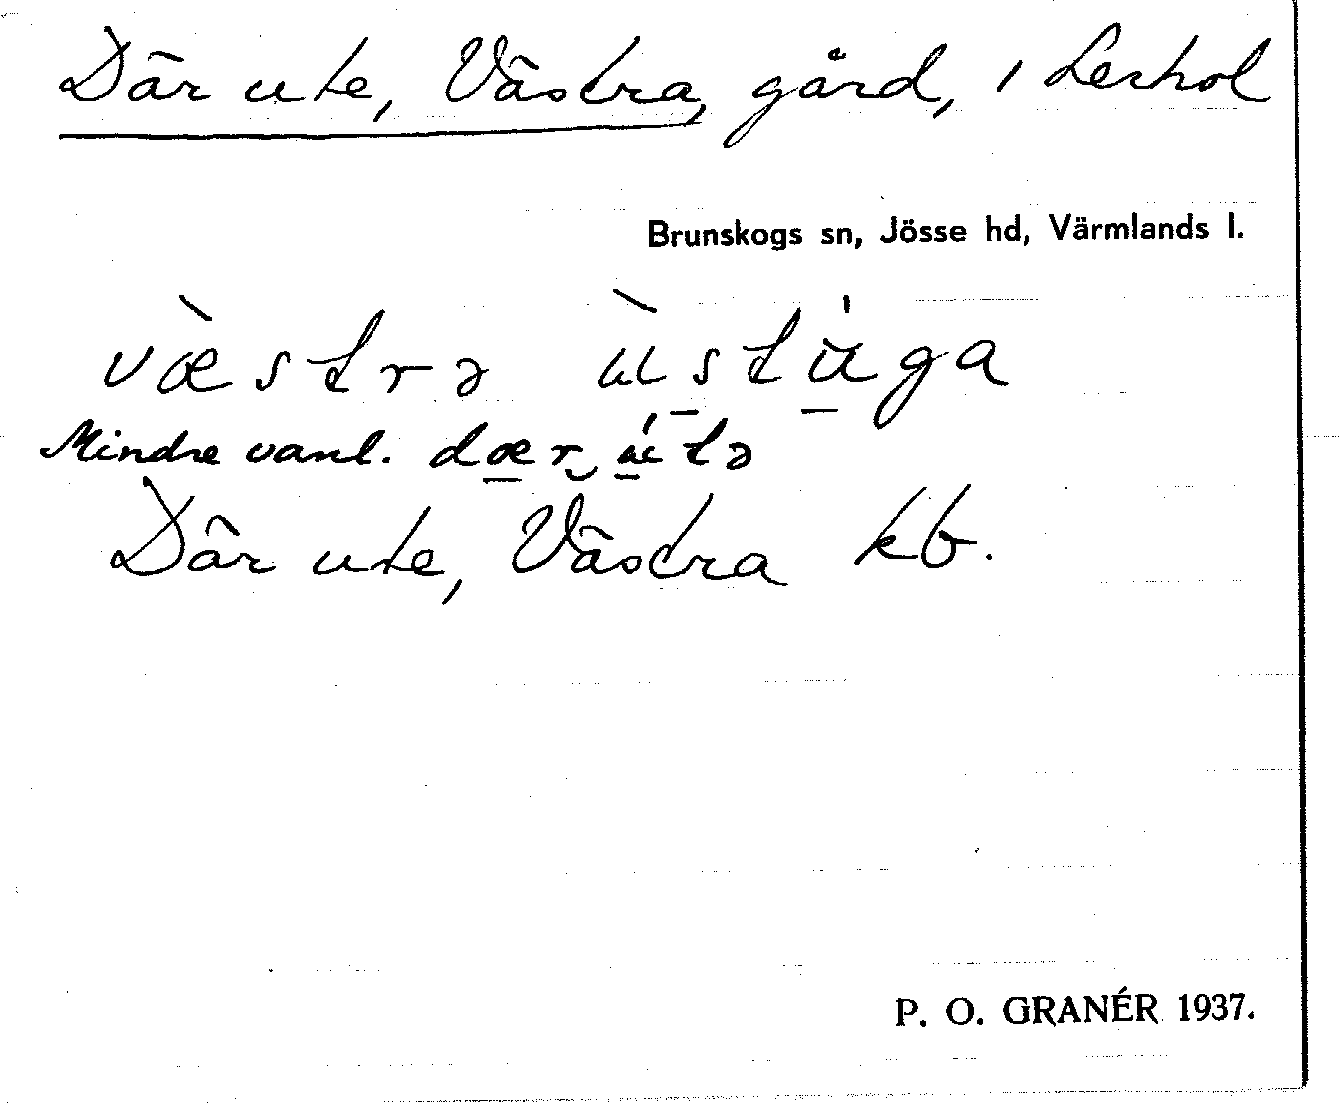 Där ute, Västra, gård, i Lerhol
Brunskogs sn, Jösse hd, Värmlands l.
væ̀strə ùstúga
Mindre vanl. dær útə
Där ute, Västra kb.
P. O. GRANÉR 1937.